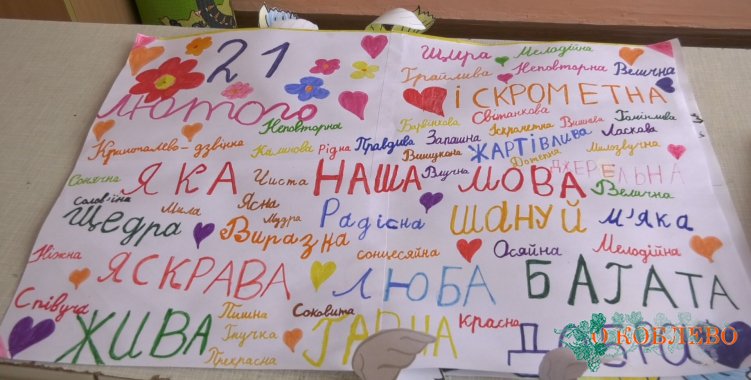 21 Щира Мелодійна
Грайлива Неповторна Велична
Лютого ІСКРОМЕТНА
Неповторна Барвінкова Світанкова Іскрометна Вишнева Голінлива
Кришталево-дзвінка Калинова Рідна Правдива Запашна ЖАРТІВЛИВА Ласкава
Вишукана Дотепна Милозвучна
Сонячна ЯКА Чиста НАША Влучна МОВА ДЖЕРЕЛЬНА Велична
Солов'їна Мила Ясна
Щедра Мудра Виразна Радісна ШАНУЙ М'ЯКА
Ніжна сонцесяйна Осяйна Мелодійна
ЯСКРАВА ЛЮБА БАГАТА
Співуча Пишна Соковита
ЖИВА Гнучка ГАРНА Красна
Прекрасна
КОБЛЕВО